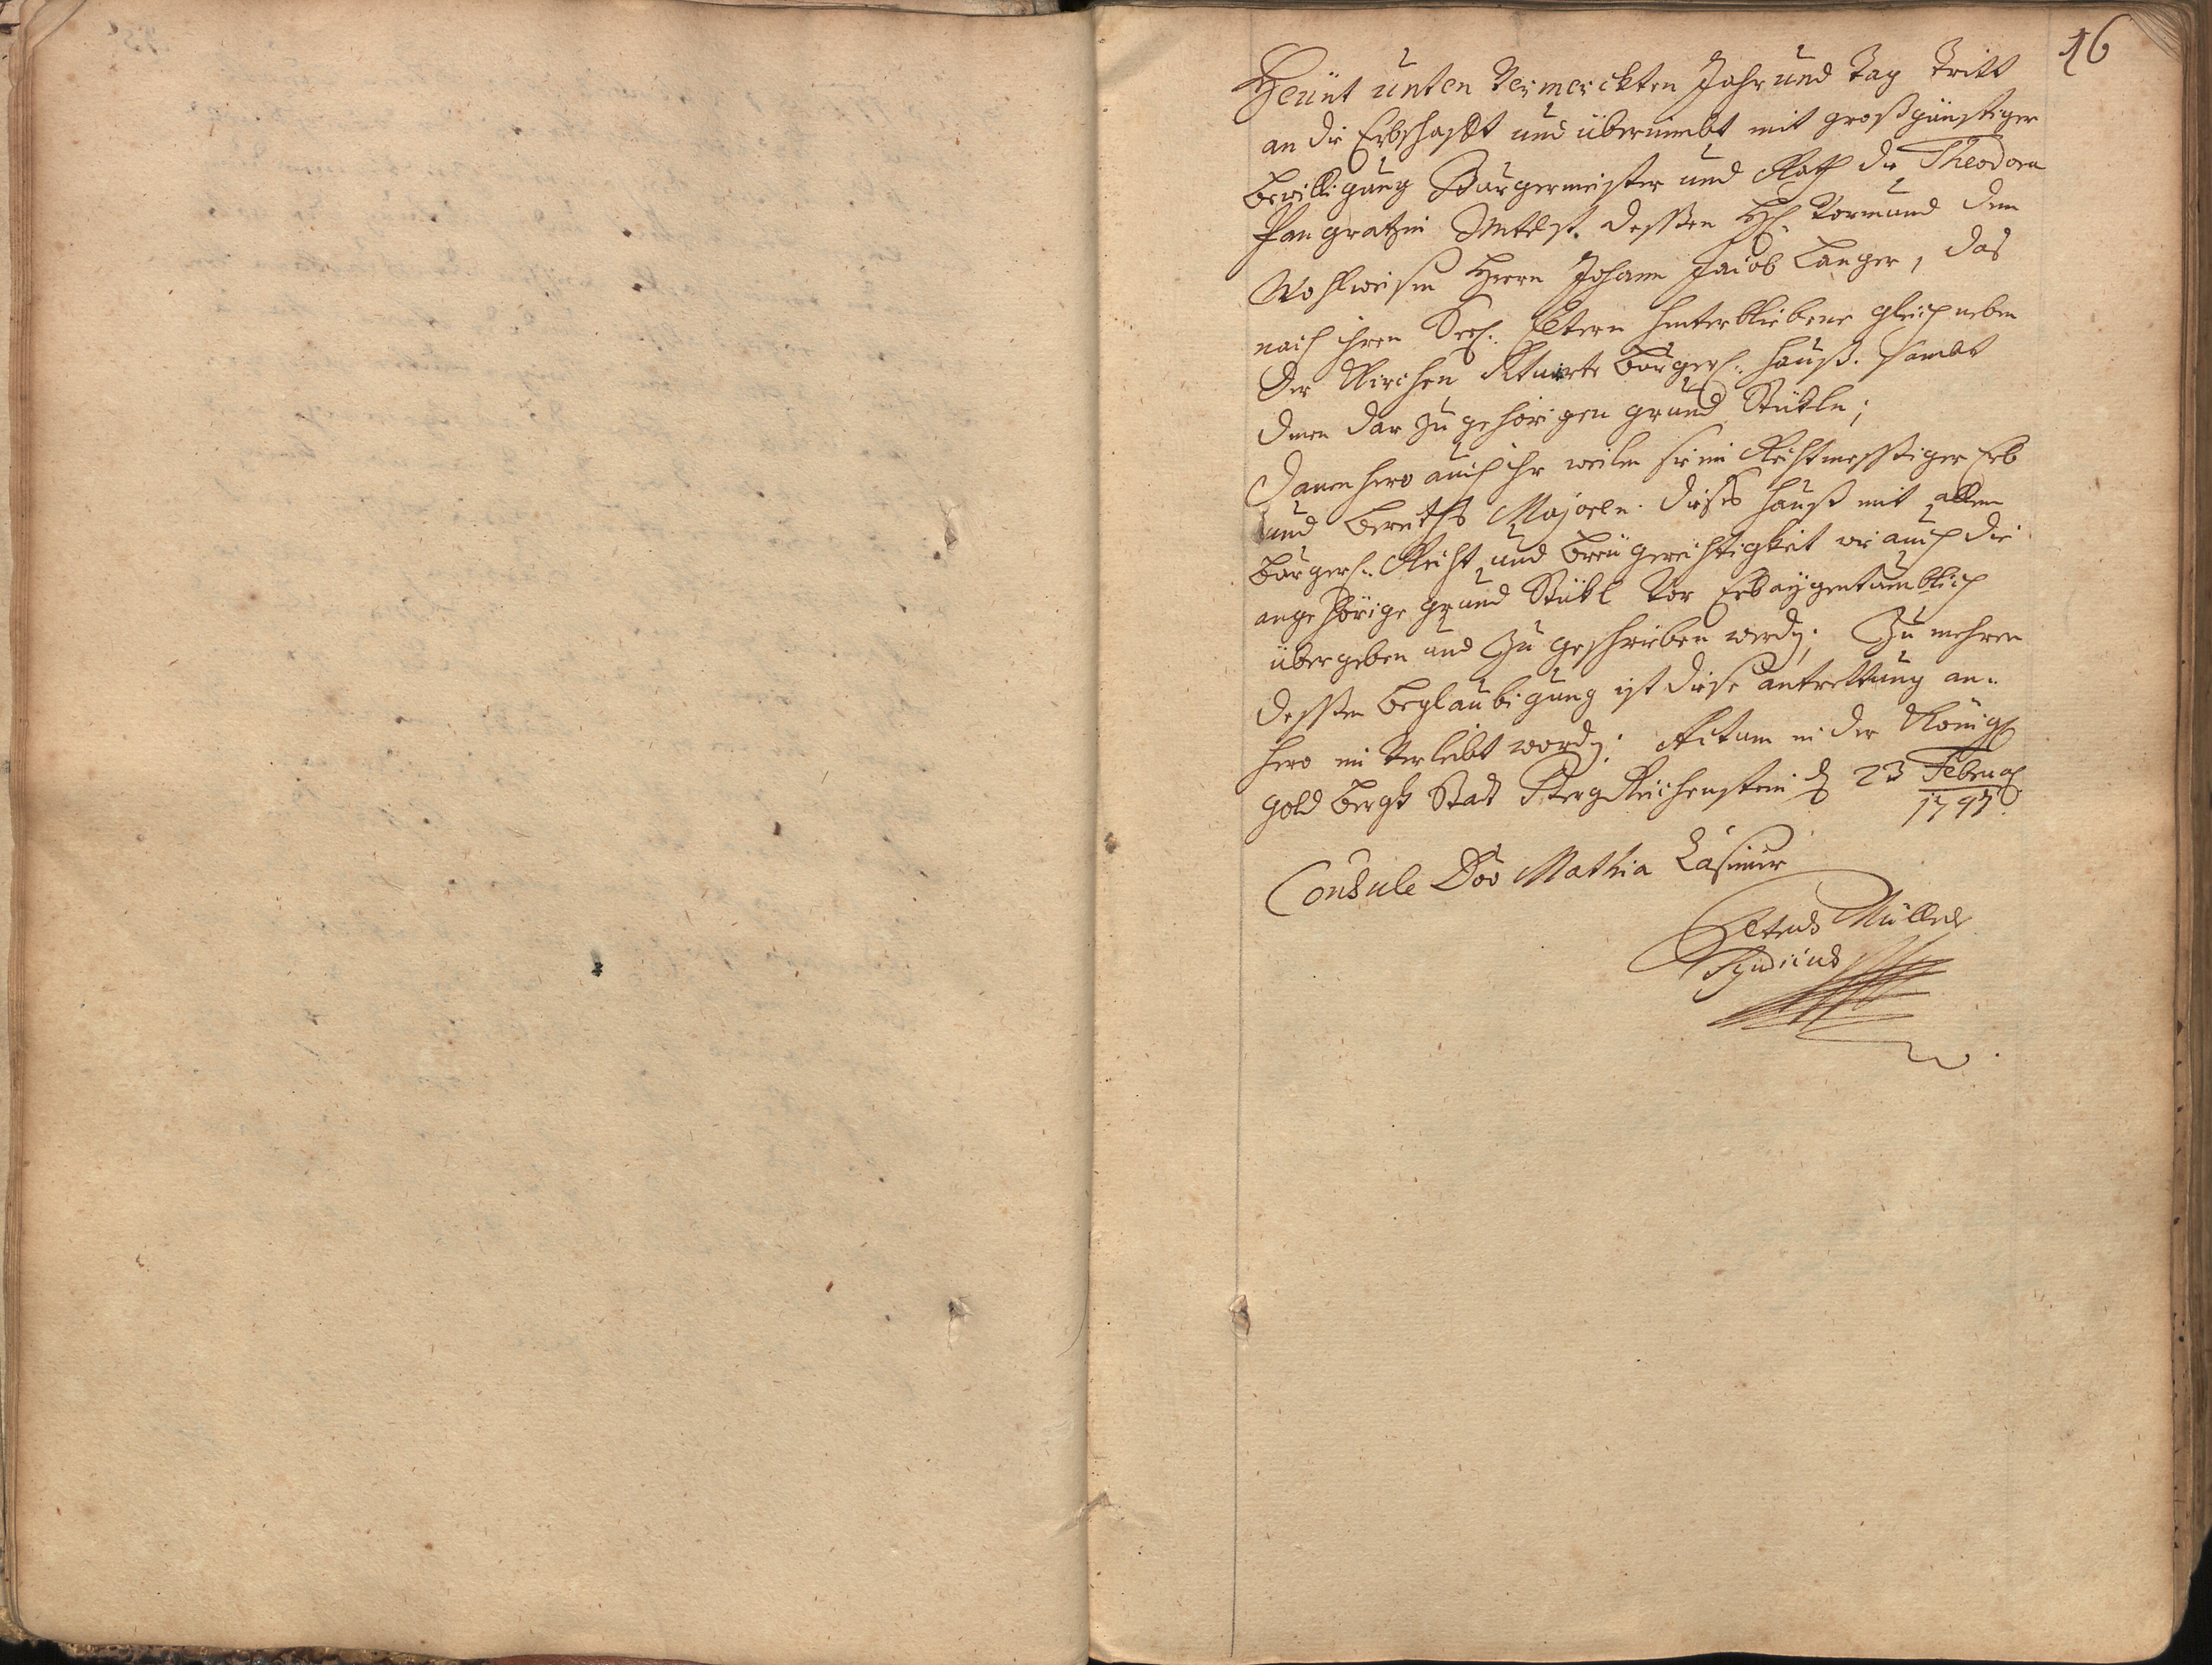 16
Heünt unten Vermerckten Jahr und Tag Tritt
an die Erbschafft und übernimbt mit großgünstiger
bewilligung Bürgermeister und Rath die Theodora
Pangratzin dessen H. Vormund dem
Wohlweisen Herrn Johann Jacob Langer, das
nach ihren Seel. Eltern hinterbliebene gleich neben
der Kirchen Situirte bürgerl. hauß. sambt
denen darzu gehörigen grund Stükln;
Danenhero auch ihr weilen sie ein Rechtmessiger Erb
und bereiths Majoren. dieses hauß mit allen
bürgerl. Recht und breü gerechtigkeit wie auch die
angehörige grund Stükl vor Erbaÿgentumblich
übergeben und Zugeschrieben werdn; Zu mehren
dessen beglaubigung ist diese antrettung an-
hero ein Verleibt wordn: Actum in der Königl
gold bergk Stadt BergReichenstein d 23 Februar
1747.
Consule Dno Mathia
Müller
Syndicus